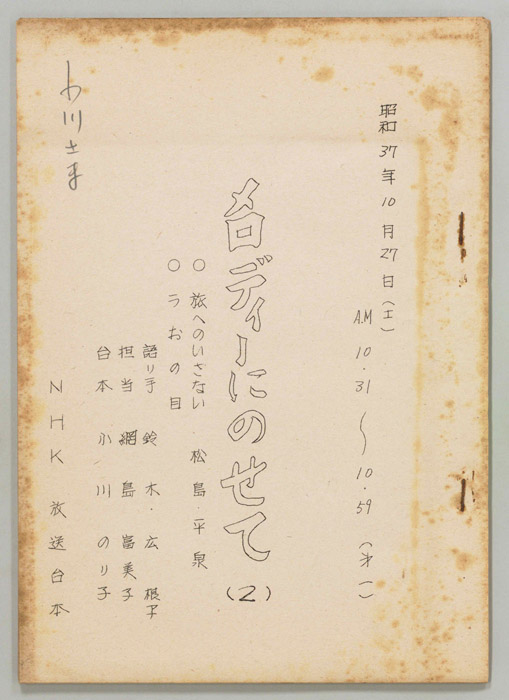 昭和37年10月27日(土)
A.M 10.31〜10.59 (才一)
メロディーにのせて(2)
○ 旅へのいざない 松島・平泉
○ うおの目
語り手 鈴木・広 根子
担当 網島富美子
台本 小川のり子
NHK 放送台本
小川さま